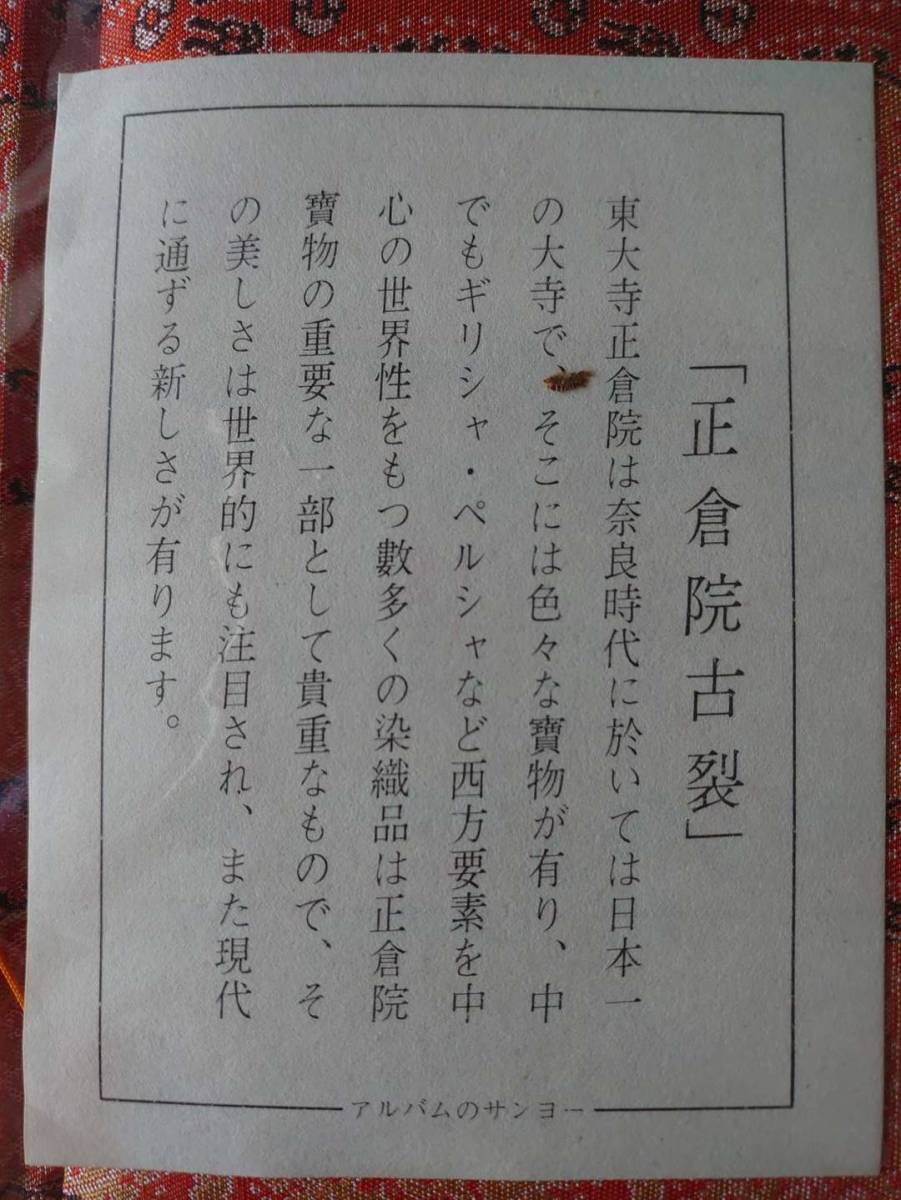 「正倉院古裂」
東大寺正倉院は奈良時代に於いては日本一
の大寺で、そこには色々な寶物が有り、中
でもギリシャ・ペルシャなど西方要素を中
心の世界性をもつ數多くの染織品は正倉院
寶物の重要な一部として貴重なもので、そ
の美しさは世界的にも注目され、また現代
に通ずる新しさが有ります。
アルバムのサンヨー